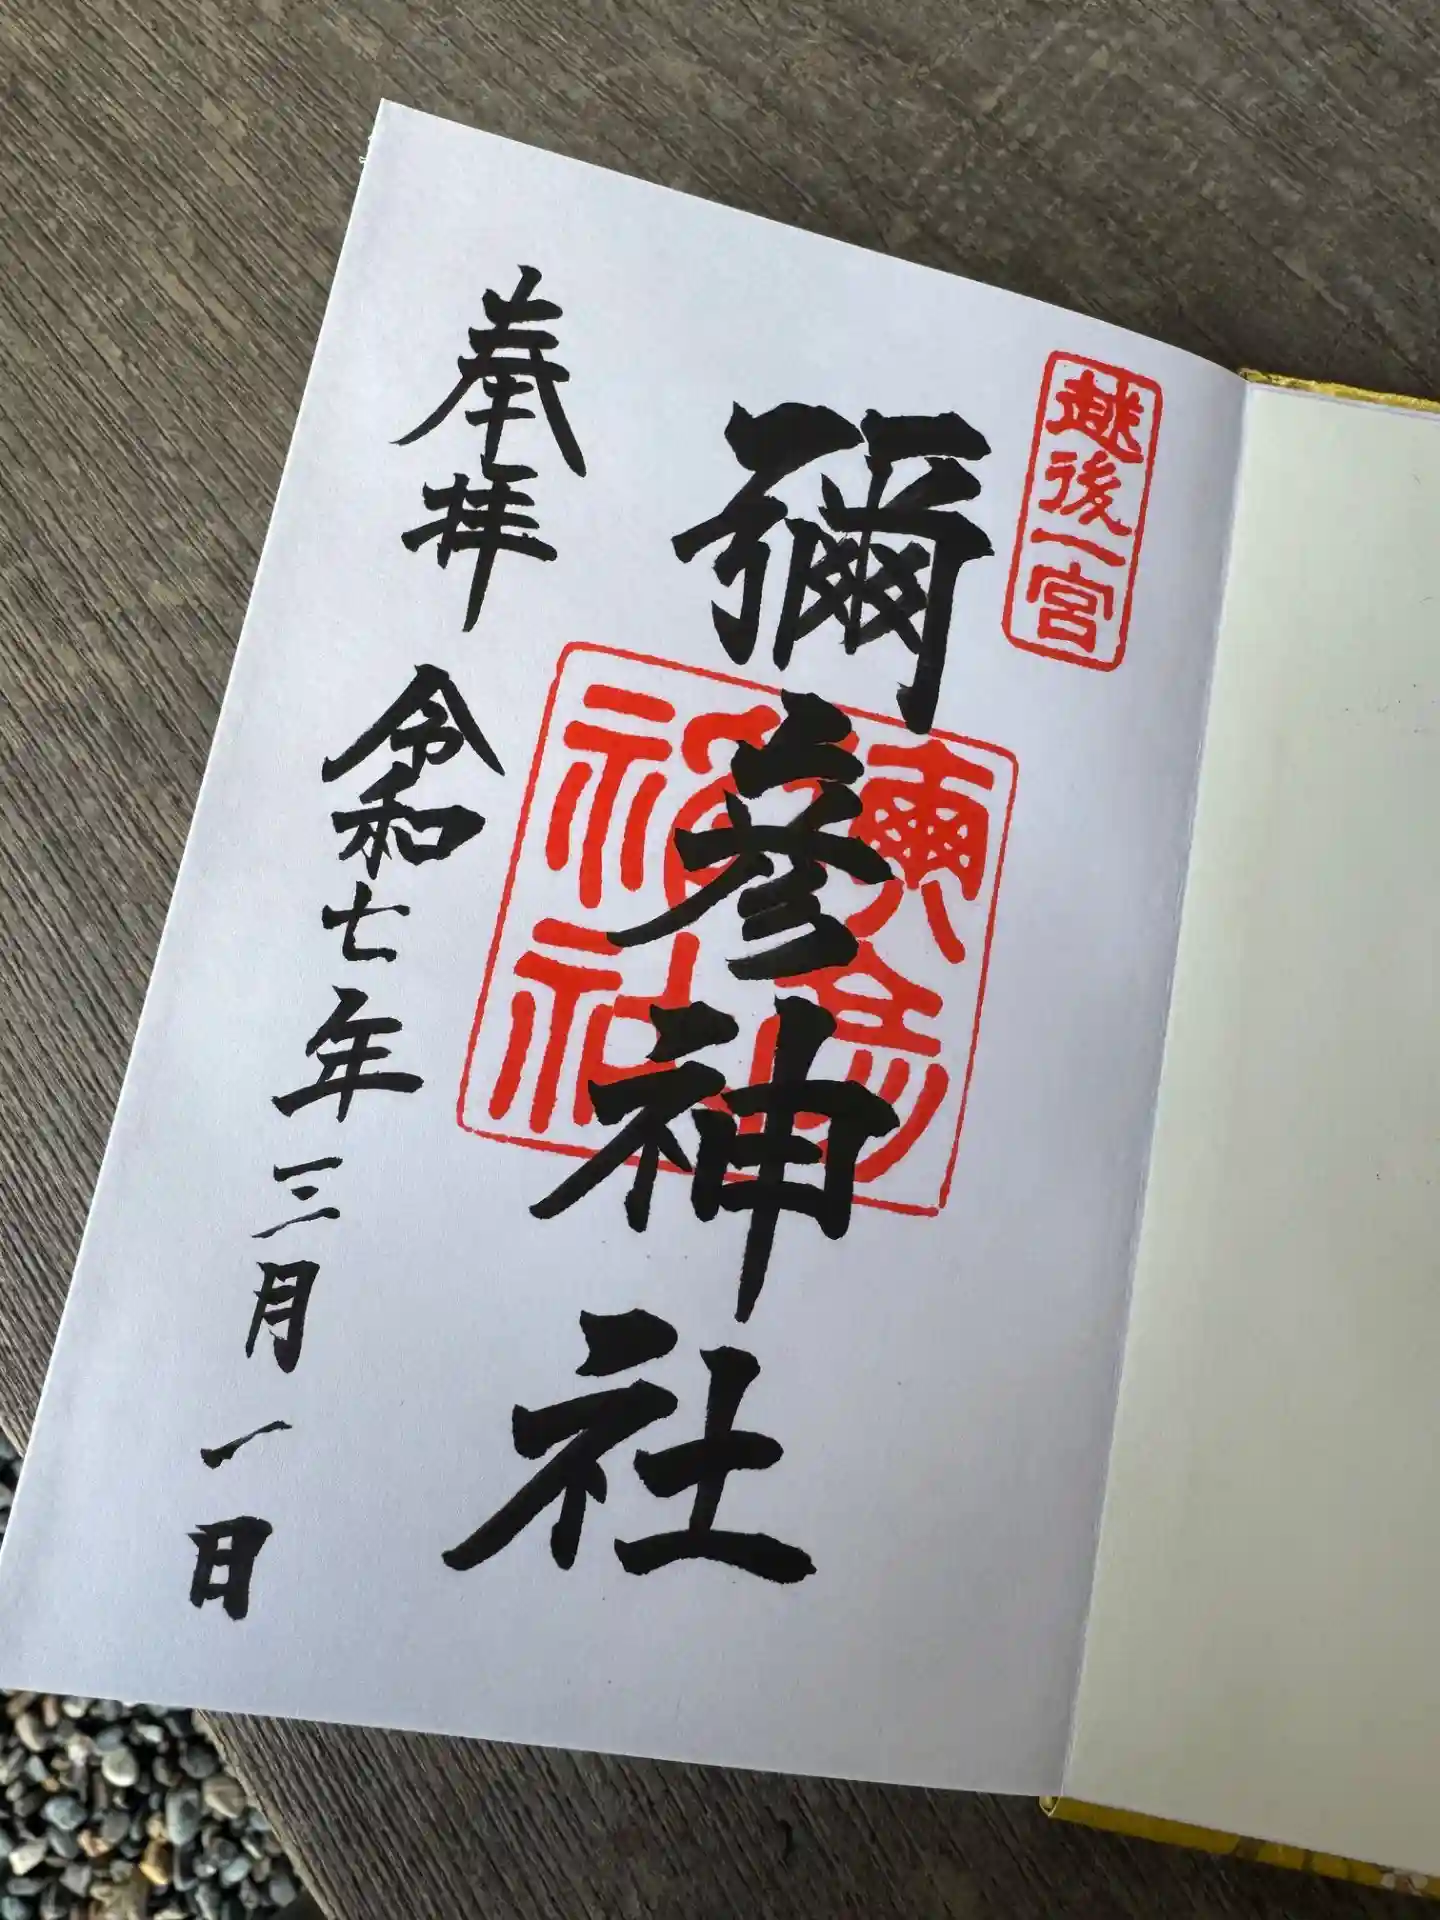 越後一宮
彌彦神社
彌彦神社
奉拝
令和七年三月一日